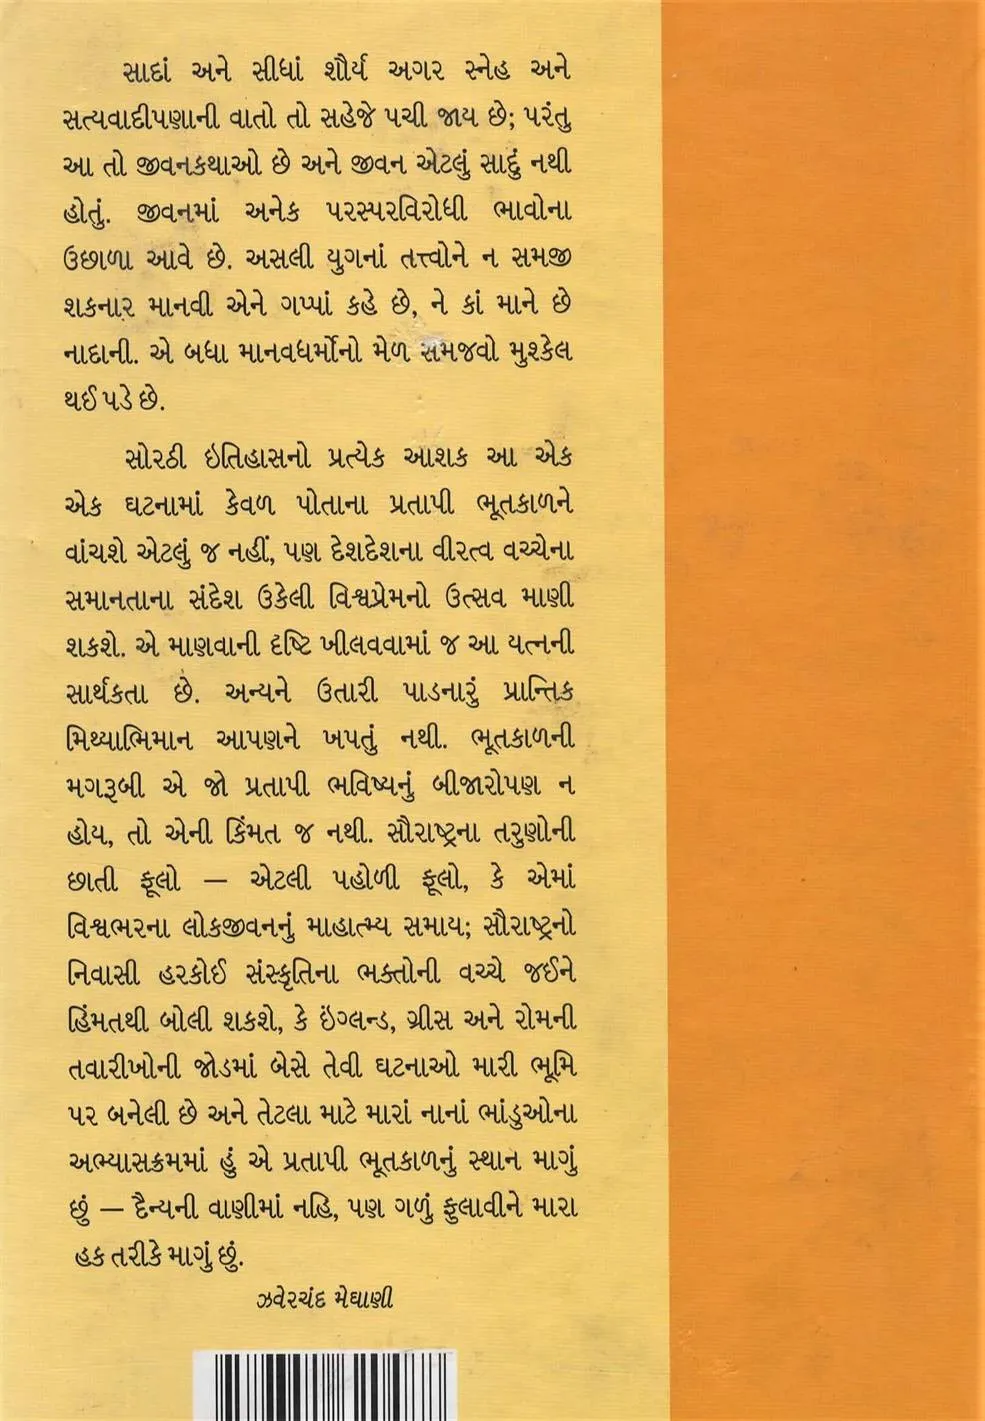 સાદાં અને સીધાં શૌર્ય અગર સ્નેહ અને
સત્યવાદીપણાની વાતો તો સહેજે પચી જાય છે; પરંતુ
આ તો જીવનકથાઓ છે અને જીવન એટલું સાદું નથી
હોતું. જીવનમાં અનેક પરસ્પરવિરોધી ભાવોના
ઉછાળા આવે છે. અસલી યુગનાં તત્ત્વોને ન સમજી
શકનાર માનવી એને ગપ્પાં કહે છે, ને કાં માને છે
નાદાની. એ બધા માનવધર્મોનો મેળ સમજવો મુશ્કેલ
થઈ પડે છે.
સોરઠી ઇતિહાસનો પ્રત્યેક આશક આ એક
એક ઘટનામાં કેવળ પોતાના પ્રતાપી ભૂતકાળને
વાંચશે એટલું જ નહીં, પણ દેશદેશના વીરત્વ વચ્ચેના
સમાનતાના સંદેશ ઉકેલી વિશ્વપ્રેમનો ઉત્સવ માણી
શકશે. એ માણવાની દૃષ્ટિ ખીલવવામાં જ આ યત્નની
સાર્થકતા છે. અન્યને ઉતારી પાડનારું પ્રાન્તિક
મિથ્યાભિમાન આપણને ખપતું નથી. ભૂતકાળની
મગરૂબી એ જો પ્રતાપી ભવિષ્યનું બીજારોપણ ન
હોય, તો એની કિંમત જ નથી. સૌરાષ્ટ્રના તરુણોની
છાતી ફૂલો — એટલી પહોળી ફૂલો, કે એમાં
વિશ્વભરના લોકજીવનનું માહાત્મ્ય સમાય; સૌરાષ્ટ્રનો
નિવાસી હરકોઈ સંસ્કૃતિના ભક્તોની વચ્ચે જઈને
હિંમતથી બોલી શકશે, કે ઇંગ્લન્ડ, ગ્રીસ અને રોમની
તવારીખોની જોડમાં બેસે તેવી ઘટનાઓ મારી ભૂમિ
પર બનેલી છે અને તેટલા માટે મારાં નાનાં ભાંડુઓના
અભ્યાસક્રમમાં હું એ પ્રતાપી ભૂતકાળનું સ્થાન માગું
છું — દૈન્યની વાણીમાં નહિ, પણ ગળું ફુલાવીને મારા
હક તરીકે માગું છું.
ઝવેરચંદ મેઘાણી